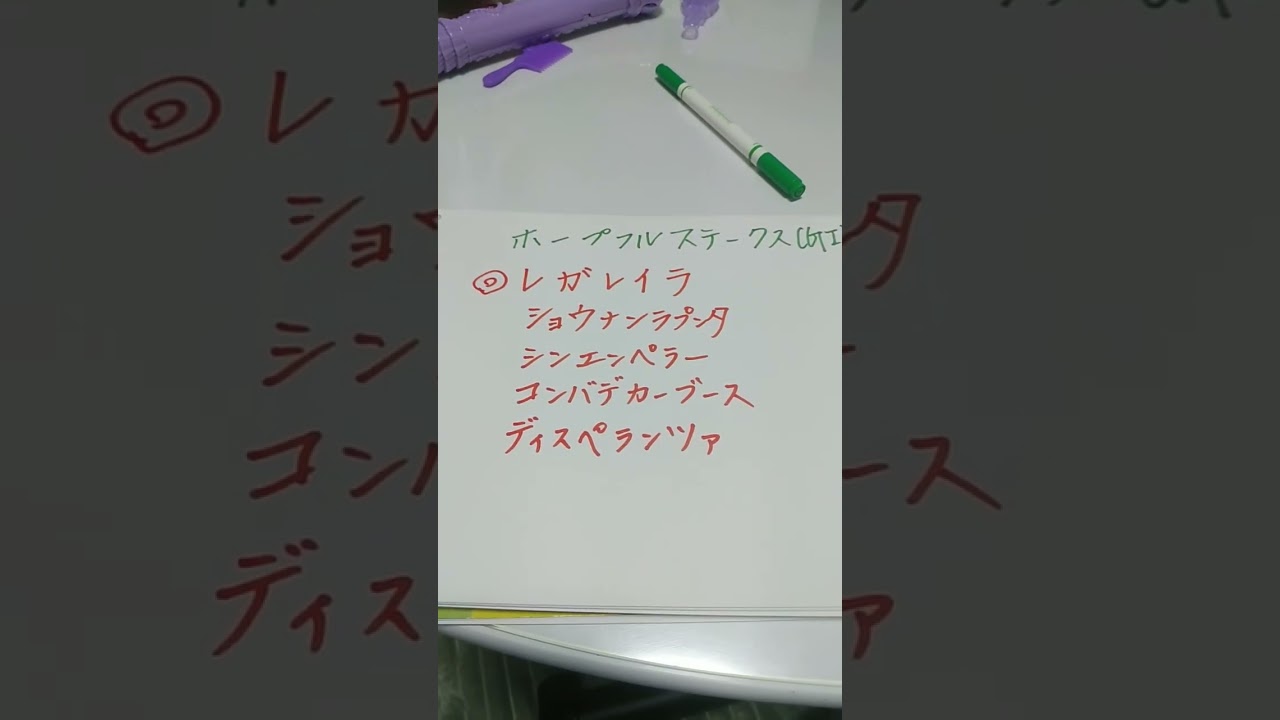 ホープフルステークス(GI
◎レガレイラ
ショウナンラプンタ
シンエンペラー
コンバデカーブース
ディスペランツァ